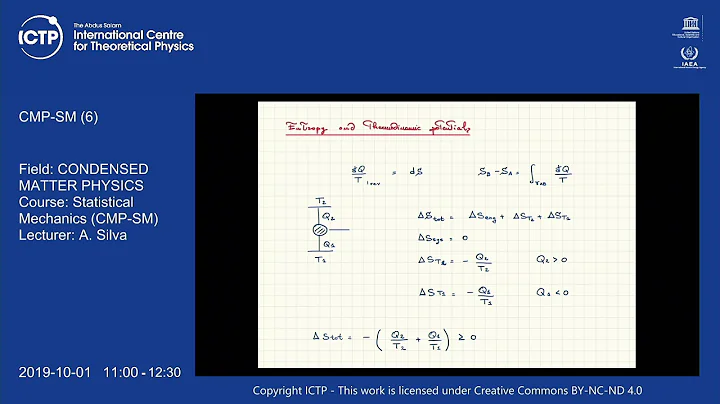 ICTP
The Abdus Salam
International Centre
for Theoretical Physics
UNESCO
IAEA
CMP-SM (6)
Field: CONDENSED
MATTER PHYSICS
Course: Statistical
Mechanics (CMP-SM)
Lecturer: A. Silva
2019-10-01 11:00 - 12:30
Entropy and Thermodinamic potentials
đQ/T |rev = dS S_B - S_A = ∫_γAB đQ/T
T2
Q2
Q1
T1
ΔS tot = ΔS eng + ΔS T2 + ΔS T1
ΔS eng = 0
ΔS T2 = - Q2/T2 Q2 > 0
ΔS T1 = - Q1/T1 Q1 < 0
ΔS tot = - ( Q2/T2 + Q1/T1 ) ≥ 0
Copyright ICTP - This work is licensed under Creative Commons BY-NC-ND 4.0